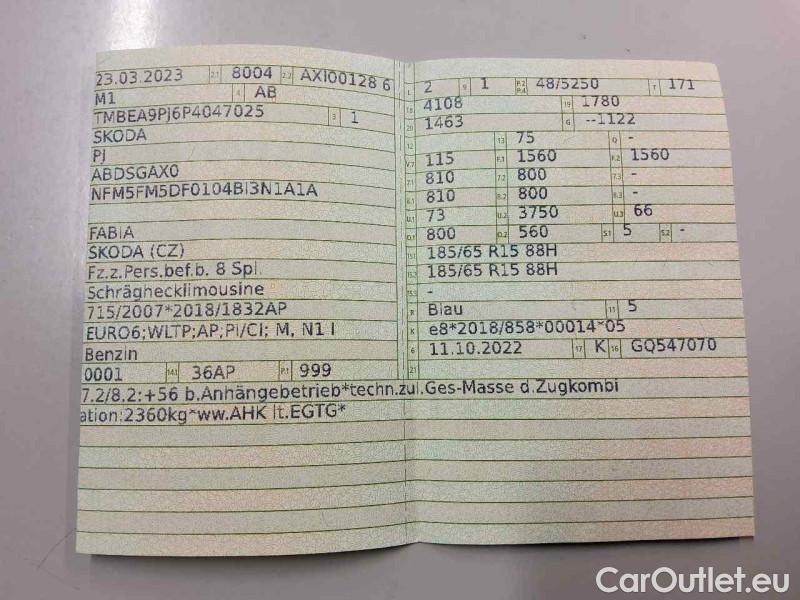 23.03.2023 2.1 8004 2.2 AXI00128 6
M1 4 AB
TMBEA9PJ6P4047025 3 1
SKODA
PJ
ABDSGAX0
NFM5FM5DF0104BI3N1A1A
FABIA
SKODA (CZ)
Fz.z.Pers.bef.b. 8 Spl.
Schräghecklimousine
715/2007*2018/1832AP
EURO6;WLTP;AP;PI/CI; M, N1 I
Benzin
0001 14.1 36AP P.1 999
7.2/8.2:+56 b.Anhängebetrieb*techn.zul.Ges-Masse d.Zugkombi
ation:2360kg*ww.AHK lt.EGTG*
L 2 9 1 P.2 P.4 48/5250 T 171
18 4108 19 1780
20 1463 G --1122
12 13 75 Q -
V.7 115 F.1 1560 F.2 1560
7.1 810 7.2 800 7.3 -
8.1 810 8.2 800 8.3 -
U.1 73 U.2 3750 U.3 66
O.1 800 O.2 560 S.1 5 S.2 -
15.1 185/65 R15 88H
15.2 185/65 R15 88H
15.3 -
R Blau 11 5
K e8*2018/858*00014*05
6 11.10.2022 17 K 16 GQ547070
21
CarOutlet.eu